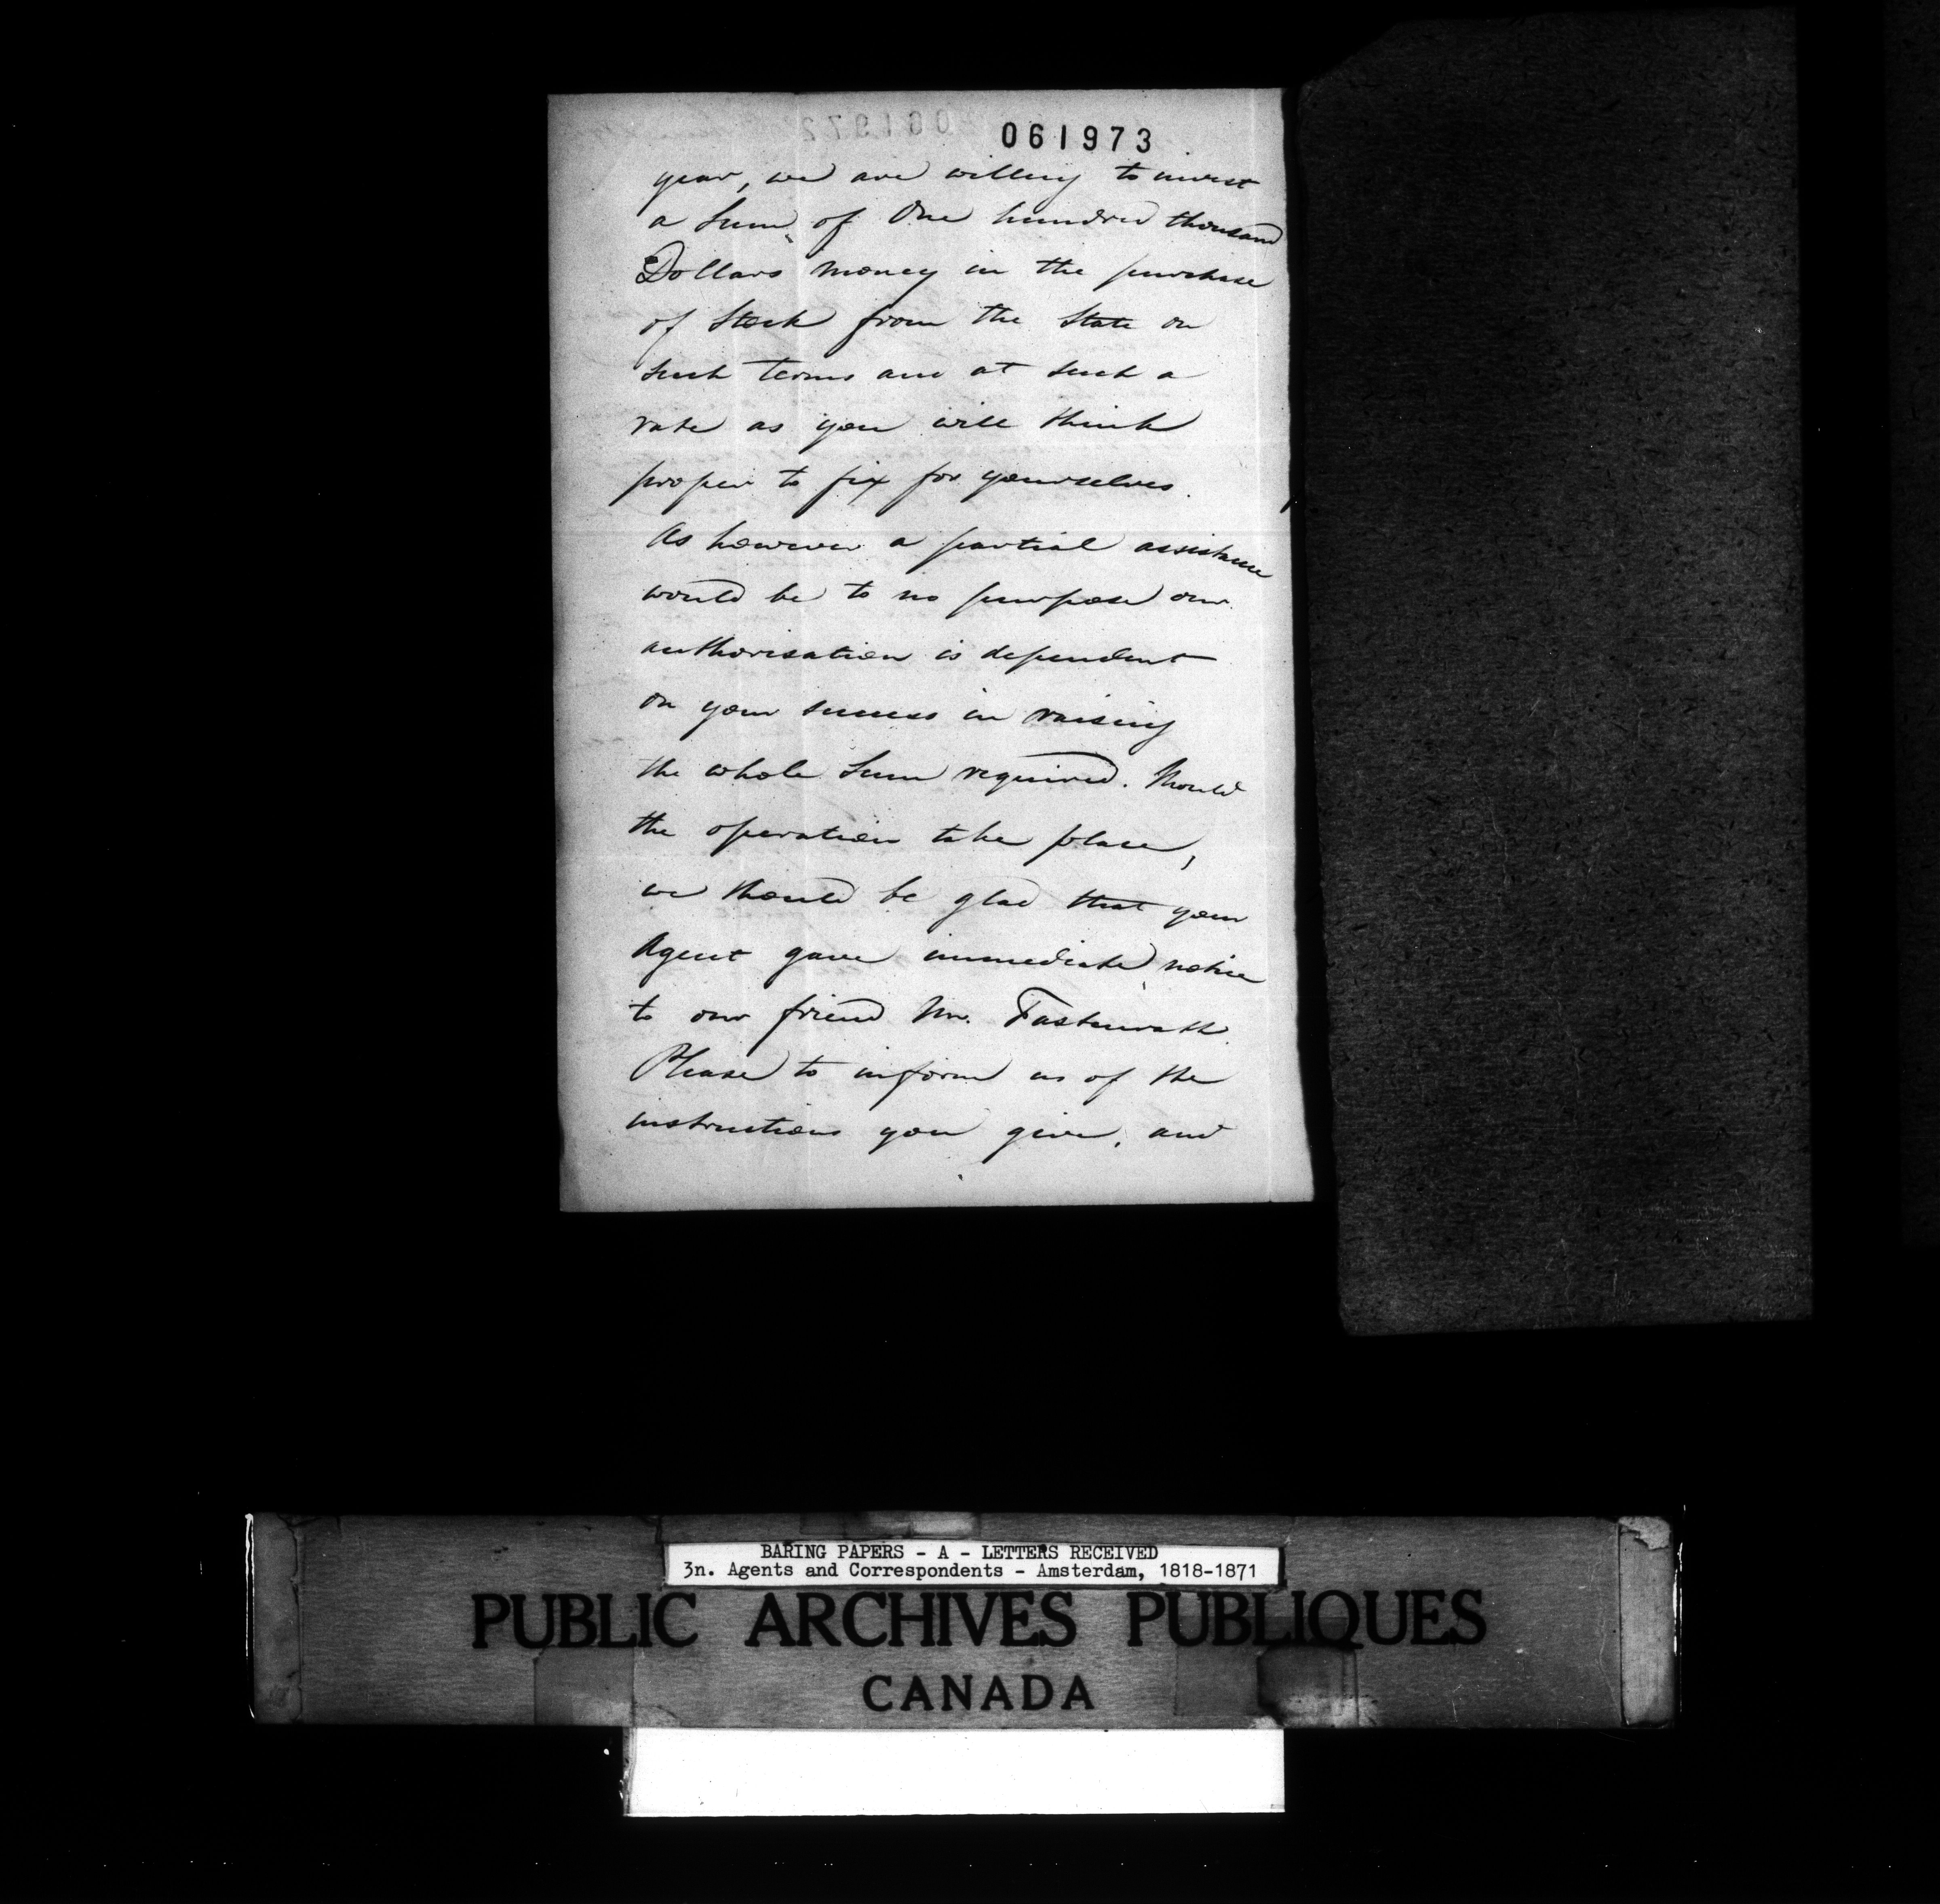 061973
year, we are willing to invest
a Sum of One hundred thousand
Dollars money in the purchase
of Stock from the State on
such terms and at such a
rate as you will think
proper to fix for yourselves.
As however a partial assistance
would be to no purpose our
authorisation is dependent
on your success in raising
the whole Sum required. Should
the operation take place,
we should be glad that your
Agent gave immediate notice
to our friend Mr.
Please to inform us of the
instructions you give, and
BARING PAPERS - A - LETTERS RECEIVED
3n. Agents and Correspondents - Amsterdam, 1818-1871
PUBLIC ARCHIVES PUBLIQUES
CANADA